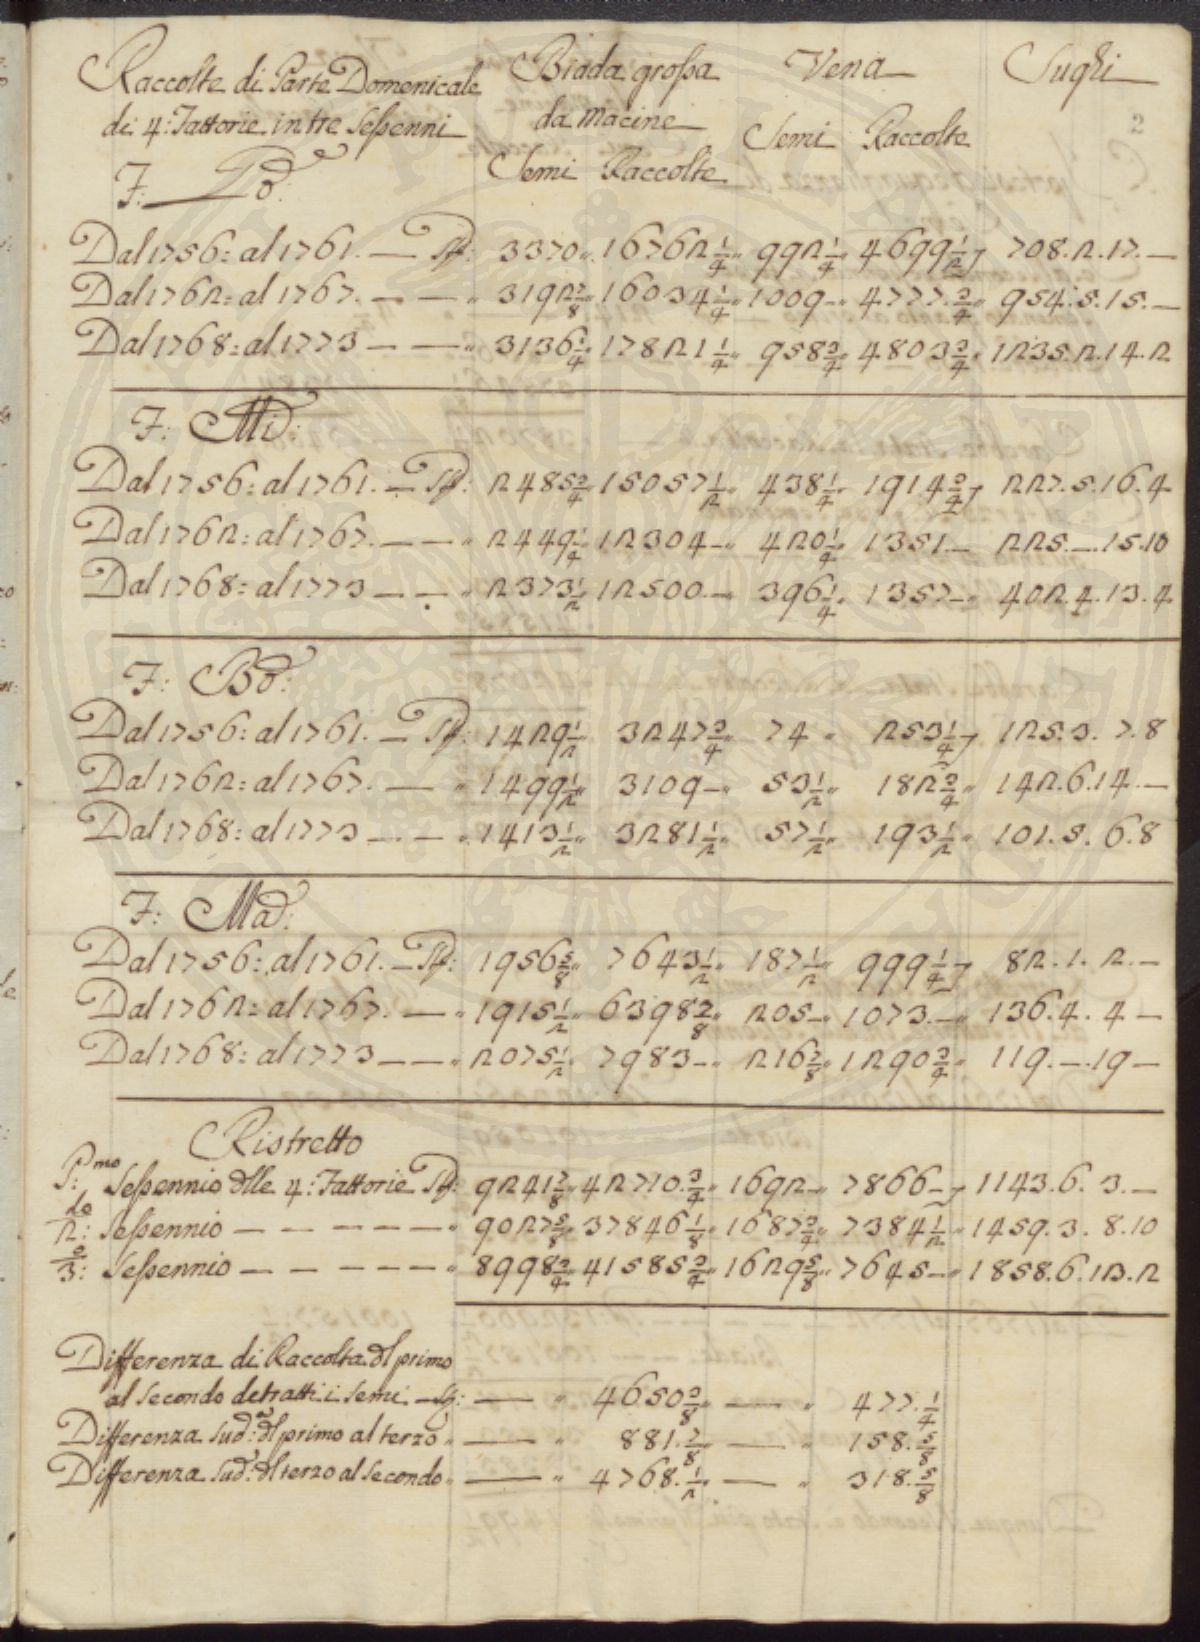 Raccolte di Parte Domenicale Biada grossa Vena Sughi
di 4: Fattorie in tre Sessenni da macine Semi Raccolte
F: Pò: Semi Raccolte
Dal 1756: al 1761. — 3370 „ 16762 1/4 „ 992 1/4 „ 4699 1/2 708. 2. 17. —
Dal 1762: al 1767. — — „ 3192 7/8 „ 16034 1/4 „ 1009 — „ 4777. 3/4 „ 954. 5. 15. —
Dal 1768: al 1773 — — „ 3136 1/4 „ 17821 1/4 „ 958 3/4 „ 4803 3/4 „ 1235. 2. 14. 2
F: Md:
Dal 1756: al 1761. — 2485 3/4 „ 15057 1/2 „ 438 1/4 „ 1914 3/4 227. 5. 16. 4
Dal 1762: al 1767. — — „ 2449 1/4 „ 12304 — „ 420 1/4 „ 1351. — 225. — . 15. 10
Dal 1768: al 1773 — — „ 2373 1/2 „ 12500. — „ 396 1/4 „ 1357 — „ 402. 4. 13. 4
F: Bd:
Dal 1756: al 1761. — 1429 1/2 „ 3247 3/4 „ 74 „ 253 1/4 125. 3. 7. 8
Dal 1762: al 1767. — „ 1499 1/2 „ 3109 — „ 53 1/2 „ 182 3/4 „ 142. 6. 14. —
Dal 1768: al 1773 — — „ 1413 1/2 „ 3281 1/2 „ 57 1/2 „ 193 1/2 „ 101. 5. 6. 8
F: Mad:
Dal 1756: al 1761. — 1956 5/8 „ 7643 1/2 „ 187 1/2 „ 999 1/4 82. 1. 2. —
Dal 1762: al 1767. — „ 1915 1/2 „ 6398 2/8 „ 205 — „ 1073. — „ 136. 4. 4 —
Dal 1768: al 1773 — — „ 2075 1/2 „ 7983 — „ 216 7/8 „ 1290 3/4 „ 119. — . 19 —
Ristretto
P:mo Sessennio dlle 4: Fattorie 9241 7/8 „ 42710. 3/4 „ 1692 — „ 7866 — 1143. 6. 3. —
2:do Sessennio — — — — — „ 9027 5/8 „ 37846 1/8 „ 1687 3/4 „ 7384 1/2 „ 1459. 3. 8. 10
3:o Sessennio — — — — — „ 8998 3/4 „ 41585 3/4 „ 1629 5/8 „ 7645 — „ 1858. 6. 13. 2
Differenza di Raccolta dl primo
al secondo detratti i semi — — „ 4650 3/8 „ — „ 477. 1/4
Differenza sud:a dl primo al terzo „ — „ 881. 7/8 „ — „ 158. 5/8
Differenza sud:a dl terzo al secondo „ — „ 4768. 1/2 „ — „ 318. 5/8